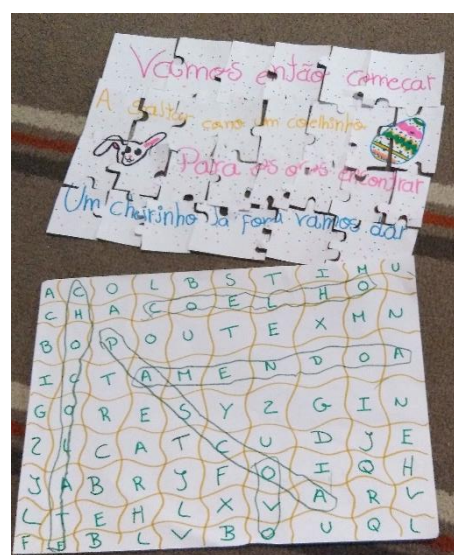 Vamos então começar
A saltar como um coelhinho
Para os ovos encontrar
Um cheirinho lá fora vamos dar
A C O L B S T I M U
C H A C O E L H O
B O P O U T E X M N
I C T A M E N D O A
G O R E S Y Z G I N
Z L C A T C U D J E
J A B R J F O I Q H
L T E H L X V A R V
F E B L V B O U Q L